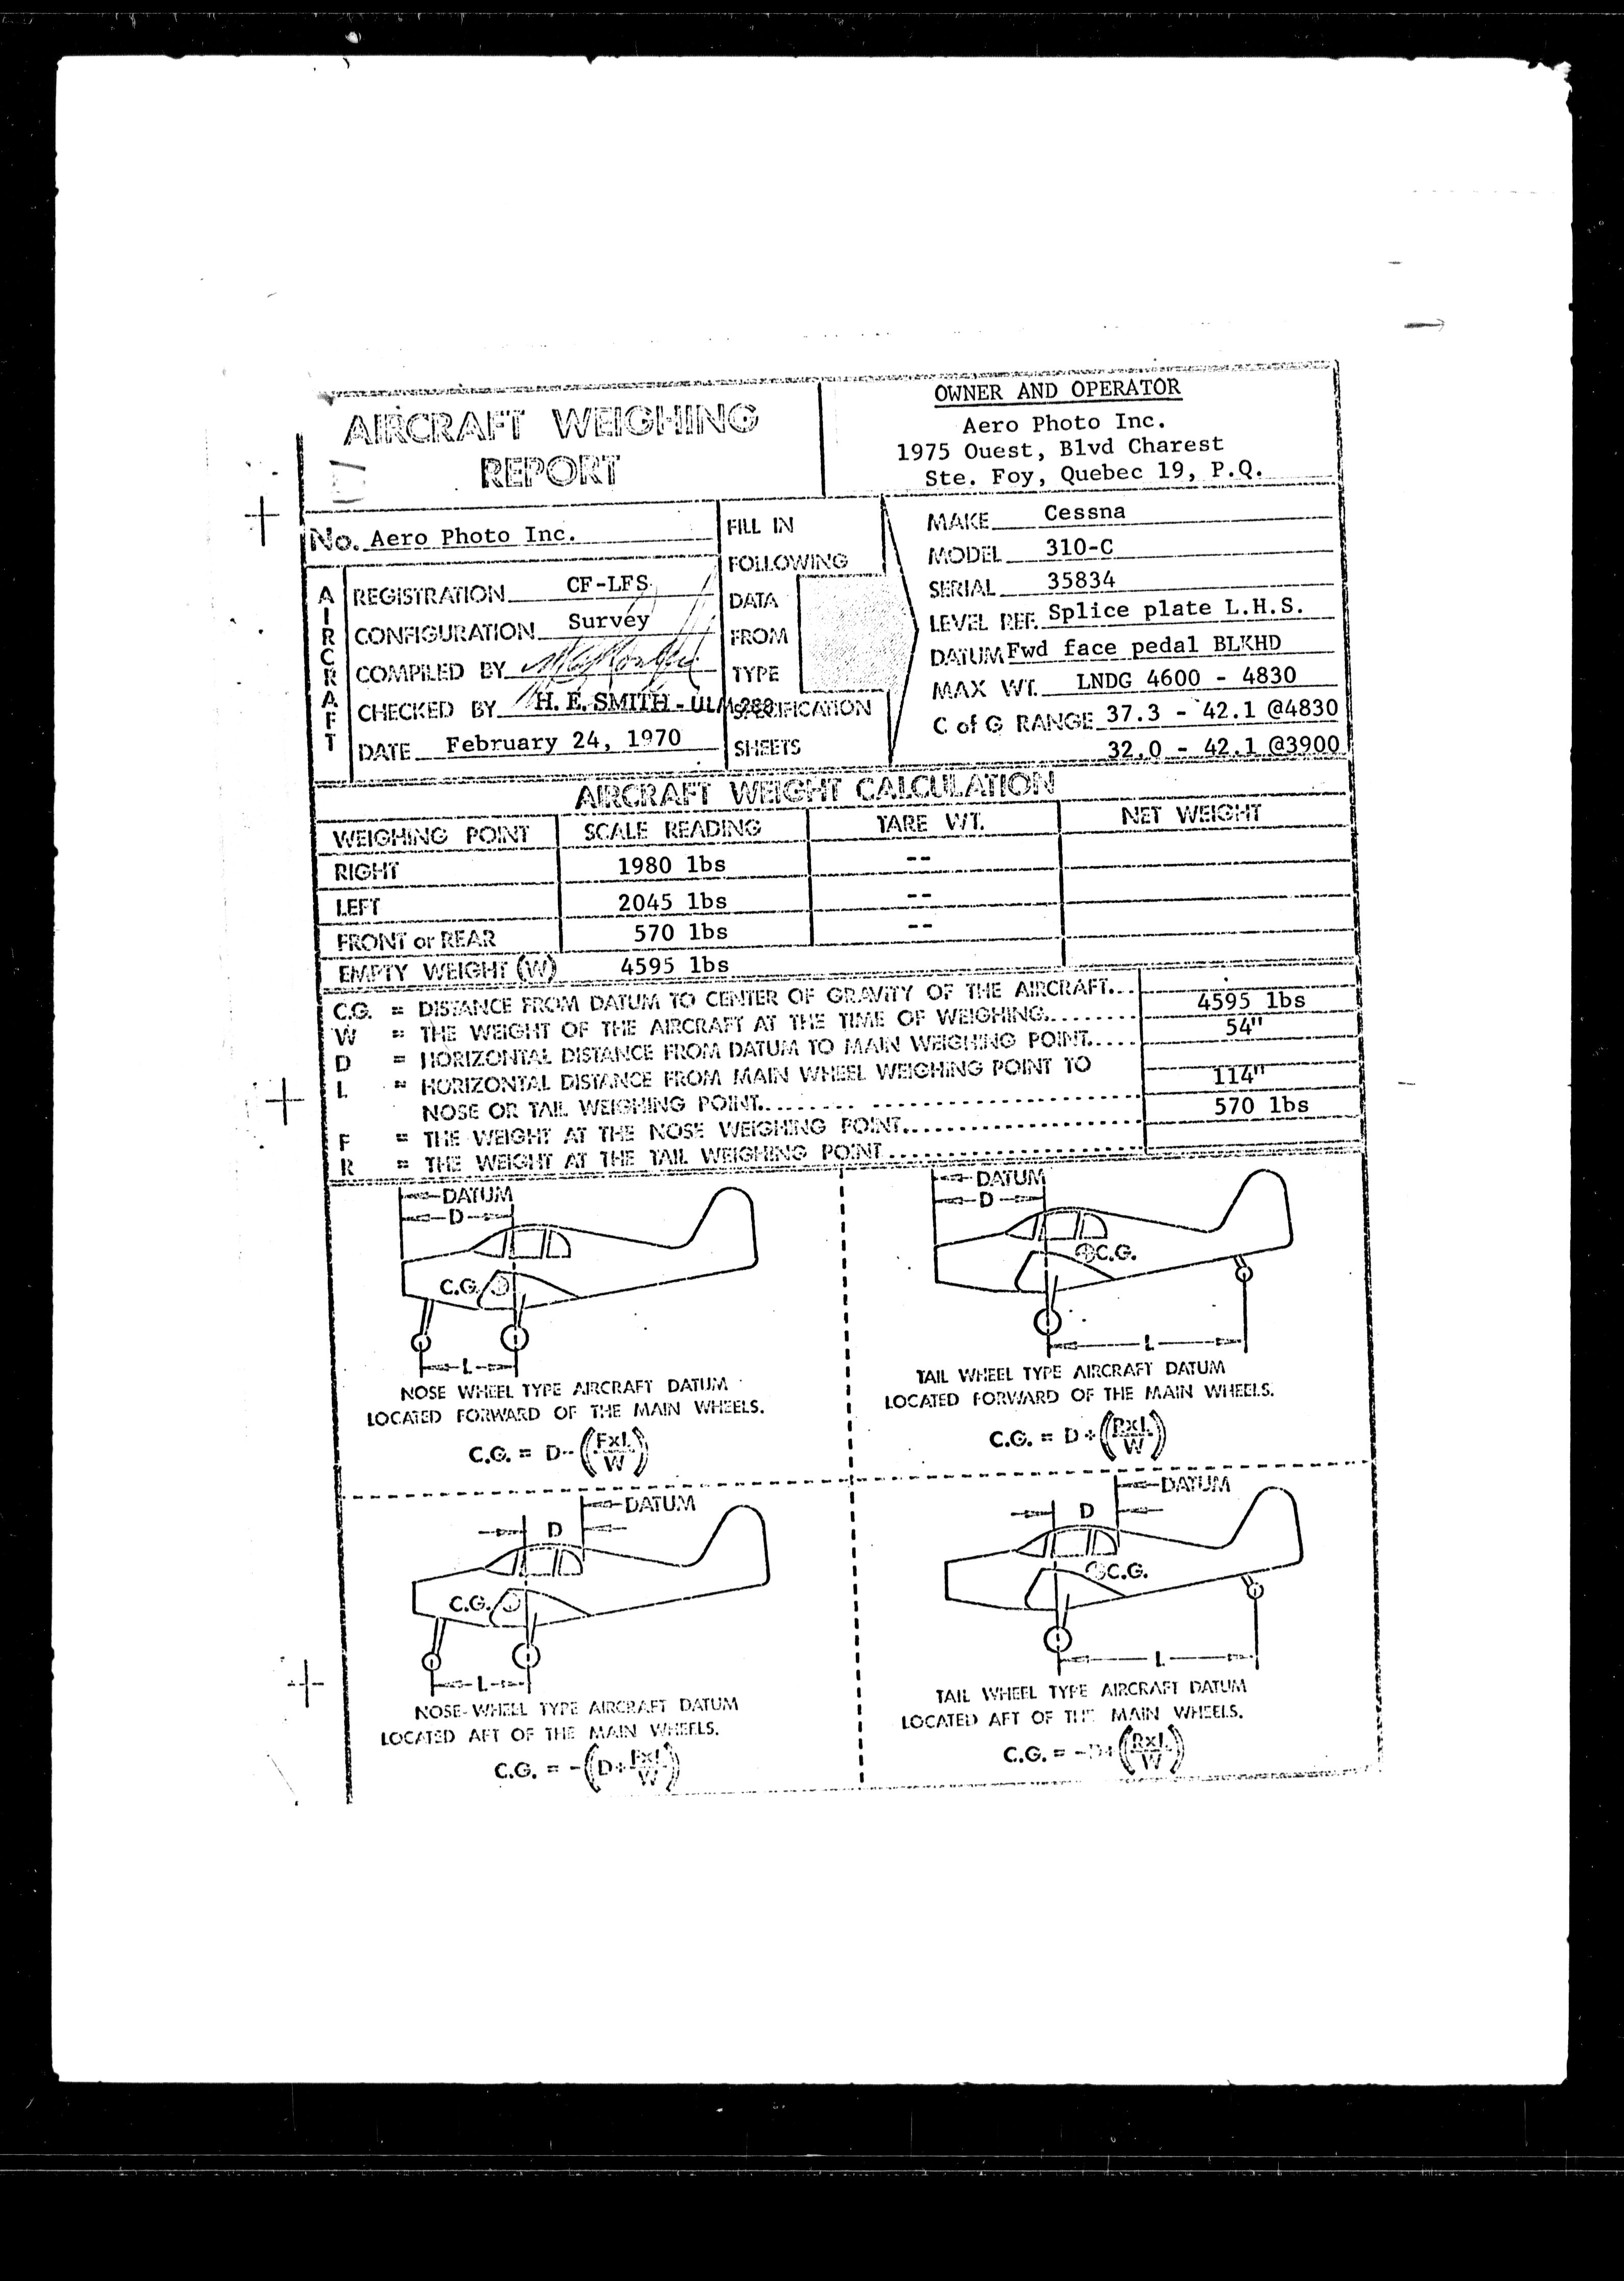 AIRCRAFT WEIGHING
REPORT
OWNER AND OPERATOR
Aero Photo Inc.
1975 Ouest, Blvd Charest
Ste. Foy, Quebec 19, P.Q.
No. Aero Photo Inc.
AIRCRAFT
REGISTRATION CF-LFS
CONFIGURATION Survey
COMPILED BY
CHECKED BY H. E. SMITH - ULM
DATE February 24, 1970
FILL IN
FOLLOWING
DATA
FROM
TYPE
SPECIFICATION
SHEETS
MAKE Cessna
MODEL 310-C
SERIAL 35834
LEVEL REF. Splice plate L.H.S.
DATUM Fwd face pedal BLKHD
MAX WT. LNDG 4600 - 4830
C of G RANGE 37.3 - 42.1 @4830
32.0 - 42.1 @3900
AIRCRAFT WEIGHT CALCULATION
WEIGHING POINT SCALE READING TARE WT. NET WEIGHT
RIGHT 1980 lbs --
LEFT 2045 lbs --
FRONT or REAR 570 lbs --
EMPTY WEIGHT (W) 4595 lbs
C.G. = DISTANCE FROM DATUM TO CENTER OF GRAVITY OF THE AIRCRAFT...
W = THE WEIGHT OF THE AIRCRAFT AT THE TIME OF WEIGHING......... 4595 lbs
D = HORIZONTAL DISTANCE FROM DATUM TO MAIN WEIGHING POINT..... 54"
L = HORIZONTAL DISTANCE FROM MAIN WHEEL WEIGHING POINT TO
NOSE OR TAIL WEIGHING POINT........ 114"
F = THE WEIGHT AT THE NOSE WEIGHING POINT........ 570 lbs
R = THE WEIGHT AT THE TAIL WEIGHING POINT........
DATUM
D
C.G.
L
NOSE WHEEL TYPE AIRCRAFT DATUM
LOCATED FORWARD OF THE MAIN WHEELS.
C.G. = D-(FxL/W)
DATUM
D
C.G.
L
TAIL WHEEL TYPE AIRCRAFT DATUM
LOCATED FORWARD OF THE MAIN WHEELS.
C.G. = D+(RxL/W)
DATUM
D
C.G.
L
NOSE-WHEEL TYPE AIRCRAFT DATUM
LOCATED AFT OF THE MAIN WHEELS.
C.G. = -(D+FxL/W)
DATUM
D
C.G.
L
TAIL WHEEL TYPE AIRCRAFT DATUM
LOCATED AFT OF THE MAIN WHEELS.
C.G. = -D+(RxL/W)